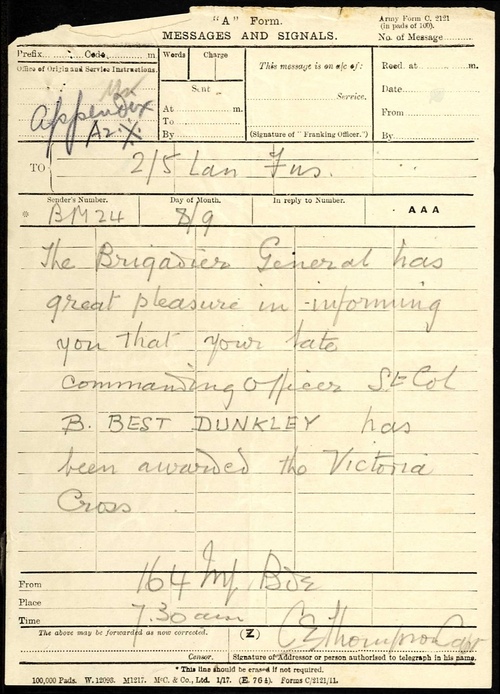 "A" Form.
MESSAGES AND SIGNALS.
Army Form C. 2121
(in pads of 100).
No. of Message
Prefix Code m
Office of Origin and Service Instructions.
Appendix
Words Charge
Sent
At m.
To
By
This message is on a/c of:
Service.
(Signature of "Franking Officer.")
Recd. at m.
Date
From
By
TO 2/5 Lan Fus.
Sender's Number. Day of Month. In reply to Number.
* BM 24 8/9 AAA
The Brigadier General has
great pleasure in informing
you that your late
commanding officer Lt Col
B. BEST DUNKLEY has
been awarded the Victoria
Cross
From 164 Inf Bde
Place
Time 7.30 am
The above may be forwarded as now corrected. (Z) C E Thompson Capt
Censor. Signature of Addressor or person authorised to telegraph in his name.
* This line should be erased if not required.
100,000 Pads. W. 12093. M1217. McC. & Co., Ltd. 1/17. (E. 764). Forms C/2121/11.